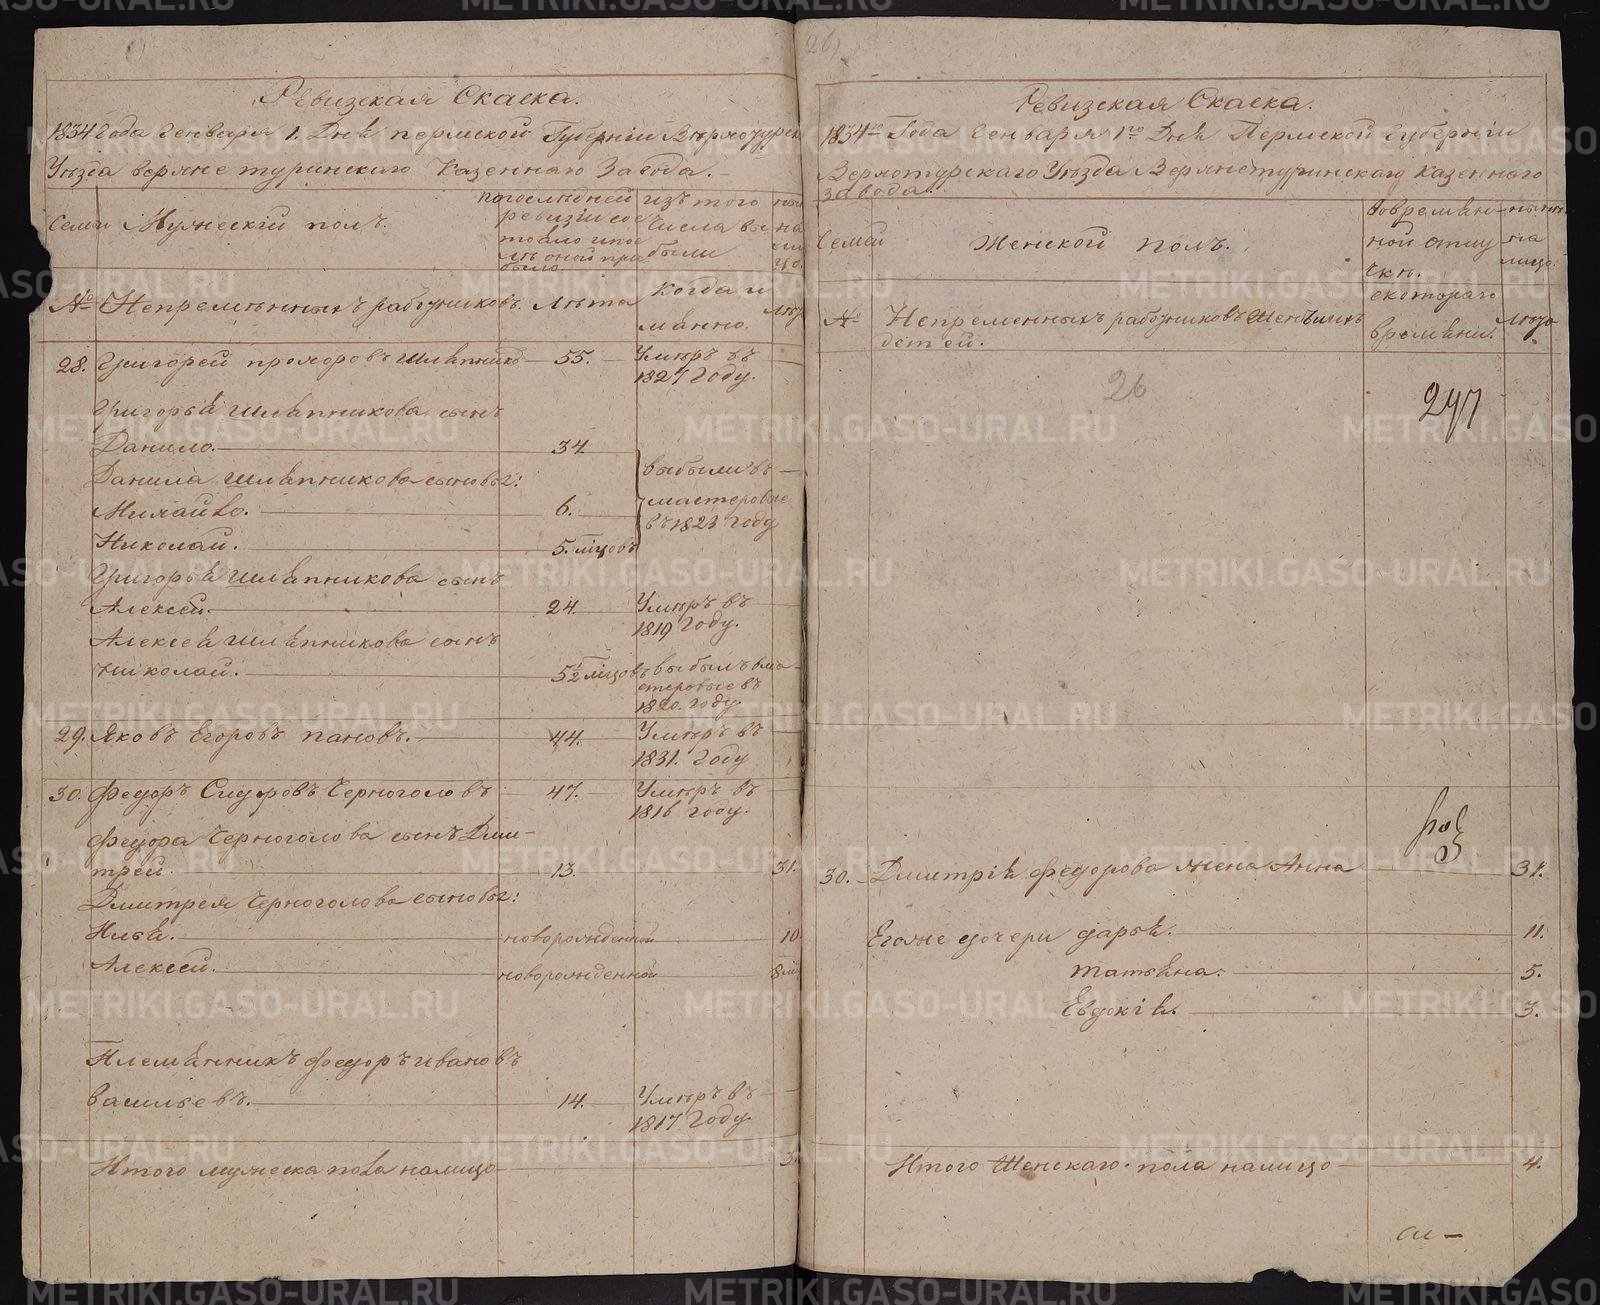 Ревизская Скаска.
1834 Года Генваря 1. Дня пермской Губернии Верхотурск
Уезда верхне туринскаго Казеннаго Завода.
Семьи
Мужескій полъ.
по последней
ревизіи сос
тояло и пос
ле оной при
было.
изъ того
числа вы
были
ныне
на
ли
цо.
№
Непременныхъ работниковъ.
Лета
Когда и
манно.
Лет
28. Григорей прохоровъ Шляпниковъ 55. Умеръ въ
1827 Году.
Григорья Шляпникова сынъ
Данило. 34.
Данила Шляпникова сыновья:
выбыли въ
мастеровые
въ 1823 Году
Михайло. 6.
Николай. 5. мцовъ
Григорья Шляпникова сынъ
Алексей. 24. Умеръ въ
1819 Году.
Алексея Шляпникова сынъ
Николай. 5½ мцовъ выбылъ вма
стеровые въ
1820. году.
29. Яковъ Егоровъ пановъ. 44. Умеръ въ
1831. Году
30. Федоръ Сидоровъ Черноголовъ 47. Умеръ въ
1816 Году.
Федора Черноголова сынъ Дми-
трей. 13. 31.
Дмитрея Черноголова сыновья:
Илья. новорожденной 10
Алексей. новорожденной 8 мц
Племянникъ Федоръ ивановъ
Васильевъ. 14. Умеръ въ
1817 Году.
Итого мужеска пола налицо 3
26
Ревизская Скаска.
1834го Года Генваря 1го Дня Пермской Губерніи
Верхотурскаго Уезда Верхнетуринскаго казеннаго
завода.
Семьи
Женской полъ.
вовремян-
ной отлу
чке.
ныне
на
лицо.
№
Непременныхъ работниковъ Женъ и ихъ
детей.
скотораго
времяни.
Лета
26
247
30. Дмитрія Федорова жена Анна 31.
Егоже дочери Дарья. 11.
татьяна. 5.
Евдокія. 3.
Итого Женскаго пола налицо 4.
METRIKI.GASO-URAL.RU